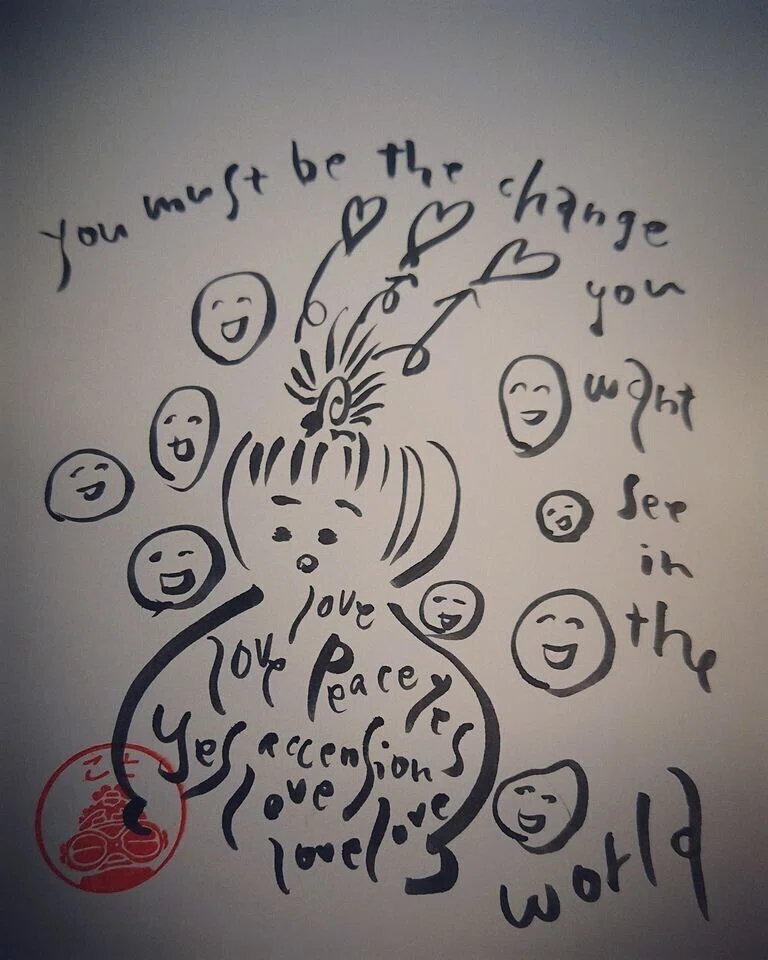 you must be the change
you
want
see
in
the
world
love
love Peace yes
yes accension
love
love love